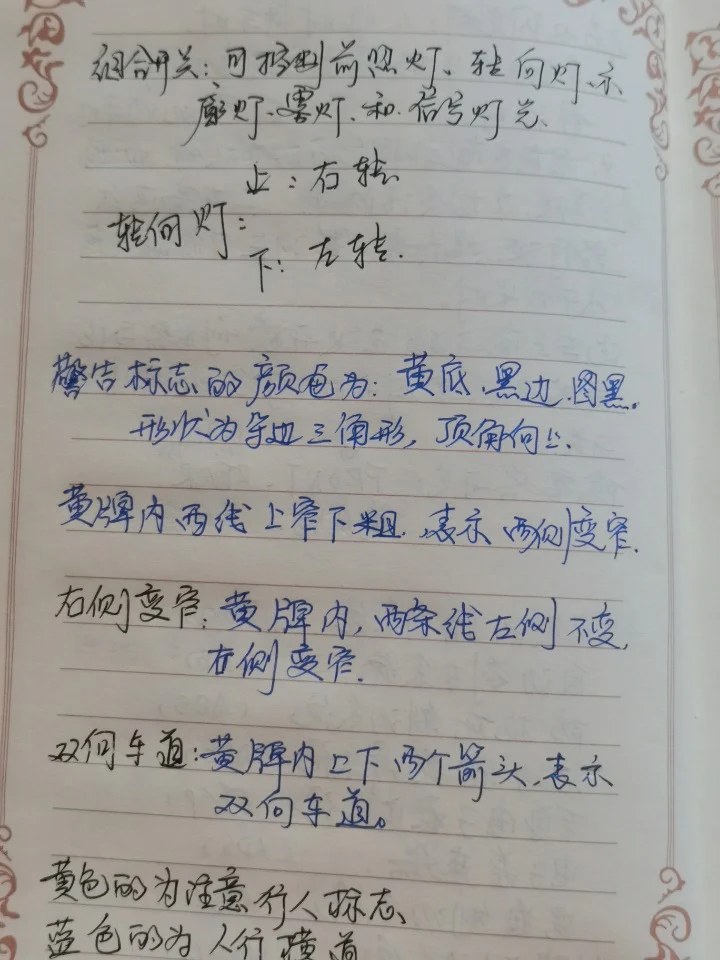 组合开关：可控制前照灯、转向灯、示
廓灯、雾灯、和信号灯光、
上：右转、
转向灯：
下：左转.
警告标志的颜色为：黄底、黑边、图黑。
形状为等边三角形，顶角向上、
黄牌内两线上窄下粗、表示两侧变窄.
右侧变窄：黄牌内，两条线左侧不变，
右侧变窄.
双向车道：黄牌内上下两个箭头、表示
双向车道。
黄色的为注意行人标志、
蓝色的为人行横道